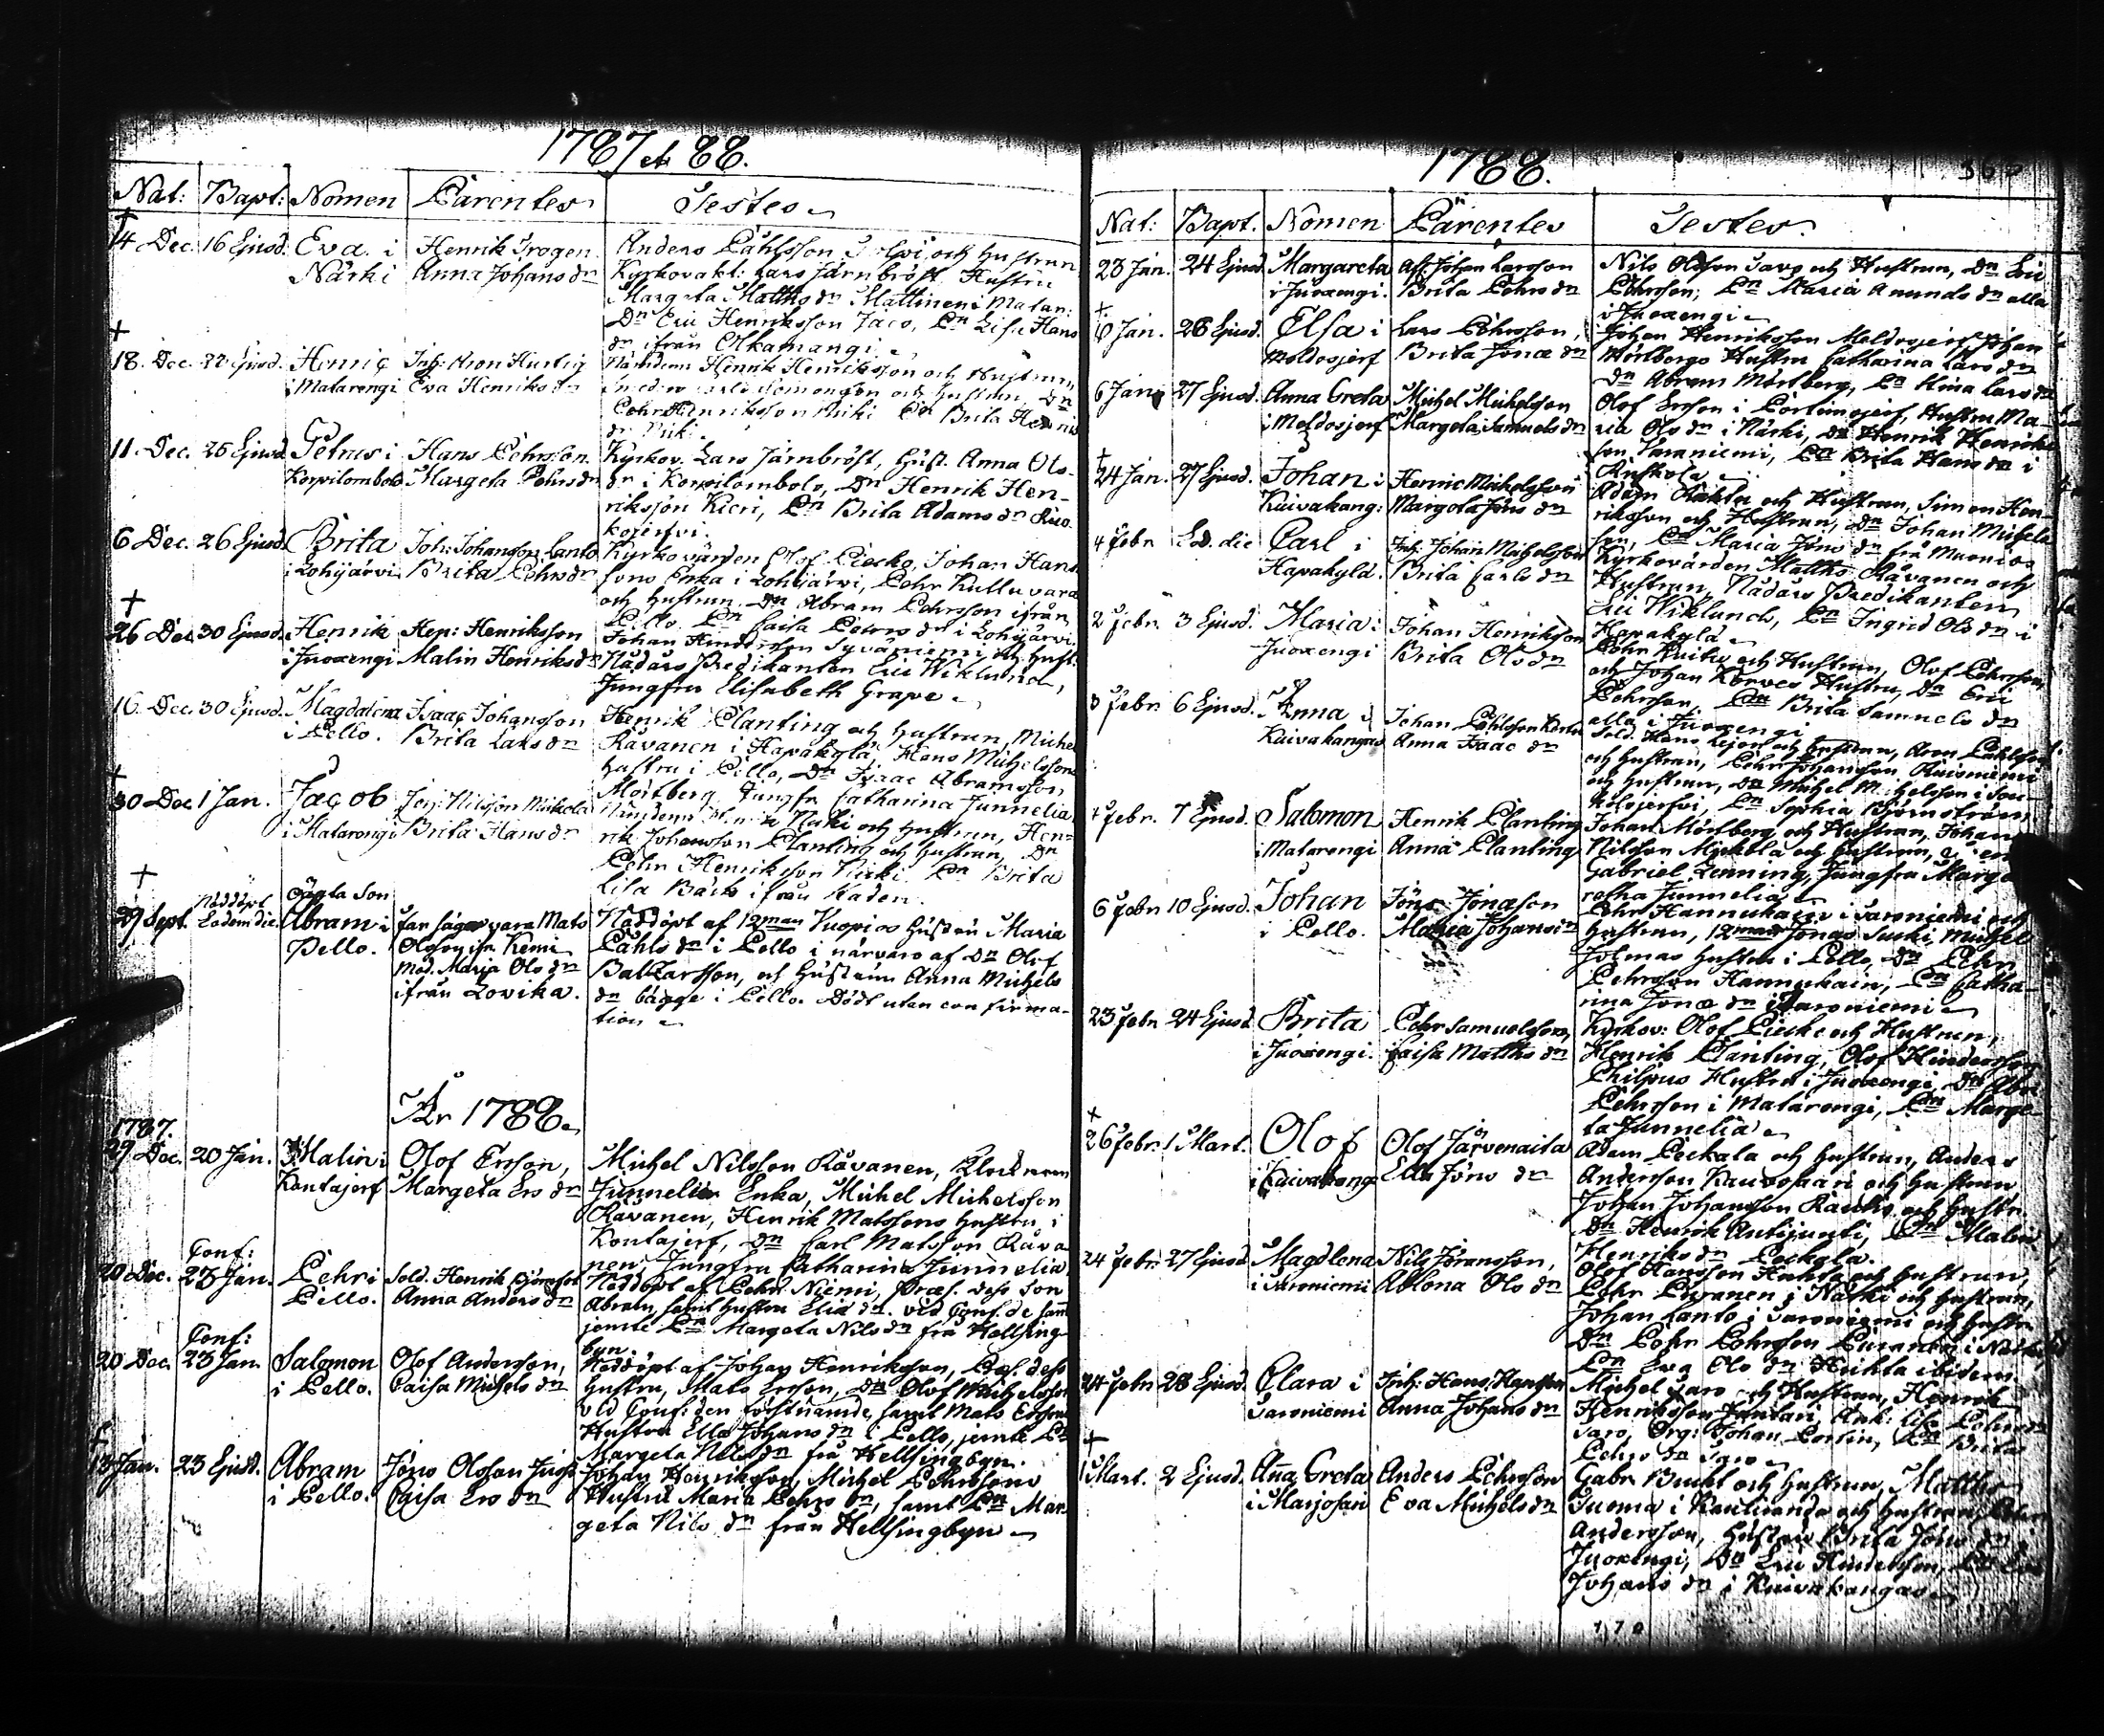 1787 et 88.
Nat: Bapt: Nomen Parentes Testes
14 Dec. 16 Ejusd. Eva i Närki
Henrik Frogen
Anna Johans dr
Anders Påhlsson och Hustrun
Kyrkovakt: Lars Järnbröst, Hustru
Margeta Matths dr Mattinen i Matar:
Dn Eric Henriksson Jaco, Pn Lisa Hans
dr ifrån Alkamangi.
18. Dec. 22 Ejusd. Henric i Matarengi
Inh: Aron Hurtig
Eva Henriks dr
Nämndem: Henrik Henriksson och Hustrun,
och Hustrun, Dn
Pehr Henriksson Niki Pn Brita Henric
dr Niki.
11. Dec. 25 Ejusd. Petrus i Korpilombolo
Hans Pehrsson
Margeta Pehrs dr
Kyrkov. Lars Järnbröst, Hust. Anna Ols
dr i Korpilombolo, Dn Henrik Hen-
riksson Kieri, Pn Brita Adams dr Ruo
kojerfvi.
6 Dec. 26 Ejusd. Brita i Lohijärvi
Joh: Johansson Lanto
Brita Pehrs dr
Kyrkovärden Olof Piecko, Johan Hans
sons Enka i Lohijärvi, Pehr Kulluvara
och Hustrun, Dn Abram Pehrsson ifrån
Pello. Pn Caisa Pehrs dr i Lohijärvi.
26 Dec. 30 Ejusd. Henrik i Juoxengi
Hen: Henriksson
Malin Henriks dr
Johan Hindersson Syväniemi och Hust:
Nådårs Predikanten Eric Wiklund,
Jungfru Elisabeth Grape.
16. Dec. 30 Ejusd. Magdalena i Pello.
Isaac Johansson
Brita Lars dr
Henrik Planting och Hustrun, Michel
Råvanen i Hapakylä, Hans Michelssons
Hustru i Pello, Dn Isaac Abramsson
Mörtberg, Jungfr. Catharina Junnelia.
30 Dec. 1 Jan. Jacob i Matarengi
Joh: Nilsson Mickola
Brita Hans dr
Nämdem: Niki och Hustrun, Hen-
rik Johansson Planting och Hustrun, Dn
Pehr Henriksson Niki Pn Brita
Lisa Bark ifrån Kaden.
29 Sept. Nöddöpt Eodem die. Oägta Son Abram i Pello.
far säges vara Mats
Olofsson ifr. Kemi
Mod. Maria Ols dr
ifrån Lovika.
Nöddöpt af 12man Kuopios Hustru Maria
Påhls dr i Pello i närvaro af Dn Olof
Baltzarsson, och Hustrun Anna Michels
dr bägge i Pello. Dödt utan confirma-
tion
År 1788.
1787.
29 Dec. 20 Jan. Malin i Kontajerf
Olof Ersson,
Margeta Ers dr
Michel Nilsson Råvanen, Klockaren
Junnelii Enka, Michel Michelsson
Råvanen, Henrik Matssons Hustru i
Kontajerf, Dn Carl Matsson Råva
nen, Jungfru Catharina Junnelia.
20 Dec. Conf: 23 Jan. Pehr i Pello.
Sold. Henrik Björnfot
Anna Anders dr
Nöddöpt af Pehr Niemi, Præs. dess Son
Abram, samt Hustru Eliæ dr. vid Conf. de samt
jemte Pn Margeta Nils dr fr. Hellsing
byn.
20 Dec. Conf: 23 Jan. Salomon i Pello.
Olof Andersson,
Caisa Michels dr
Nöddöpt af Johan Henriksson, Præs. dess
Hustru, Mats Ersson, Dn Olof Michelsson
vid Conf: den förstnämde, samt Mats Erssons
Hustru Ella Johans dr i Pello, jemte Pn
Margeta Nils dr fr. Hellsingbyn.
13 Jan. 23 Ejusd. Abram i Pello.
Jöns Olsson Juoso
Caisa Ers dr
Johan Henriksson, Michel Pehrssons
Hustru Maria Pehrs dr, samt Pn Mar
geta Nils dr från Hellsingbyn
1788.
Nat: Bapt. Nomen Parentes Testes.
23 Jan. 24 Ejusd. Margareta i Juoxengi.
Afl: Johan Larsson
Brita Pehrs dr
Nils Olsson Savo och Hustrun, Dn Eric
Pehrsson, Pn Maria Anunds dr alla
i Juoxengi
6 Jan. 26 Ejusd. Elsa i Meldosjerf
Lars Pehrsson,
Brita Jonæ dr
Johan Henriksson Meldosjerf, Johan
Mörtbergs Hustru Catharina Lars dr
Dn Abram Mörtberg, Pn Stina Lars dr
6 Jan. 27 Ejusd. Anna Greta i Meldosjerf
Michel Michelsson
Margeta Samuels dr
Olof Ersson i Portimojerf, Hustru Ma-
ria Ols dr i Närki, Dn Henrik Henriks
son Saroniemi, Pn Brita Hans dr i
Ruskola
24 Jan. 27 Ejusd. Johan i Kuivakang:
Henric Michelsson
Margeta Jöns dr
Adam och Hustrun, Simon Hen-
riksson och Hustrun, Dn Johan Michels
son, Pn Maria Jöns dr fr. Marnios
4 Febr. Eod. die Carl i Hapakylä.
Inh. Johan Michelsson
Brita Carls dr
Kyrkovärden Matths Råvanen och
Hustrun, Nådårs Predikanten
Eric Wiklund, Pn Ingrid Ols dr i
Hapakylä
2 Febr. 3 Ejusd. Maria i Juoxengi
Johan Henriksson
Brita Ols dr
Pehr och Hustrun, Olof Pehrsson,
och Johan Körves Hustru, Dn Eric
Pehrsson, Pn Brita Samuels dr
alla i Juoxengi
3 Febr. 6 Ejusd. Anna i Kuivakangas
Johan Påhlsson
Anna Isaac dr
Sold. Hans Lejon och Hustrun, Aron Påhlsson
och Hustrun, Pehr Johansson Ruisniemi
och Hustrun, Dn Michel Michelsson i Jou-
kolojerfvi, Pn Sophia Björnström
Febr. 7 Ejusd. Salomon i Matarengi
Henrik Planting
Anna Planting
Johan Mörtberg och Hustrun, Johan
Nilsson Mickola och Hustrun,
Gabriel Lenning, Jungfru Marga
retha Junnelia
6 Febr. 10 Ejusd. Johan i Pello.
Jöns Jönsson
Maria Johans dr
Pehr Hannukain i Saroniemi och
Hustrun, 12man Jonas Suski, Michel
Jolmas Hustru i Pello, Dn Pehr
Pehrsson Hannukain, Pn Catha-
rina Jonæ dr i Saroniemi
23 Febr. 24 Ejusd. Brita i Juoxengi.
Pehr Samuelsson,
Caisa Matths dr
Kyrkov: Olof Piecke och Hustrun,
Henrik Planting, Olof Hindersson
Philpus Hustru i Juoxengi, Dn
Pehrsson i Matarengi, Pn Marge
ta Junnelia
26 Febr. 1 Mart. Olof i Kuivakang
Olof Järvenaita
Ella Jöns dr
Adam Peckala och Hustrun, Anders
Andersson Kauvosaari och Hustrun
Johan Johansson Rautio och Hustr.
Dn Henrik Antijunti, Pn Malin
Henriks dr Peckyla.
24 Febr. 27 Ejusd. Magdlena i Saroniemi
Nils Jöransson,
Ablona Ols dr
Olof Hansson Huhta och Hustrun,
Pehr Puranen i Närki och Hustrun,
Johan Lanto i Saroniemi och Hustr.
Dn Pehr Pehrsson Puranen i Närki
Pn Eva Ols dr Huhta ibidem.
24 Febr. 28 Ejusd. Clara i Saroniemi
Inh: Hans Hansson
Anna Johans dr
Michel Saro och Hustrun, Henrik
Henriksson Juntari, Enk: Lisa Pehrs dr
Saro, Drg: Johan Portin, Pn Brita
Pehrs dr Saro
1 Mart. 2 Ejusd. Aña Greta i Marjosari
Anders Pehrsson
Eva Michels dr
Gabr. Bucht och Hustrun, Matths
Tuoma i Rautiranda och Hustrun, Pehr
Andersson, Hustru Brita Jöns dr
Juoxengi, Dn Eric Hindersson,
Johans dr i Kuivakangas
170